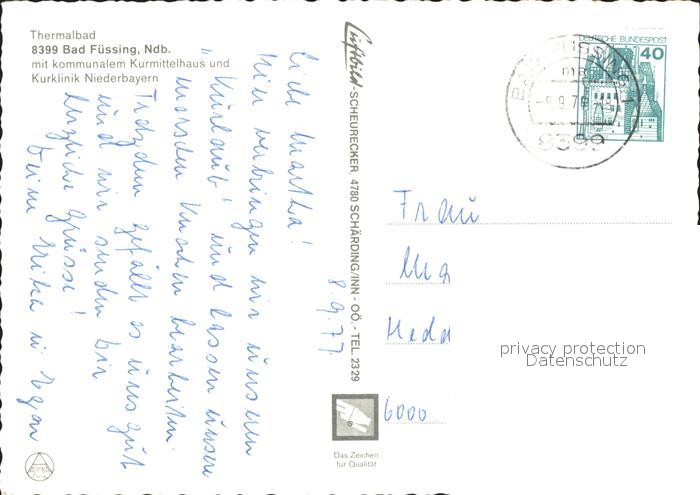 Thermalbad
8399 Bad Füssing, Ndb.
mit kommunalem Kurmittelhaus und
Kurklinik Niederbayern
8.9.77.
Liebe Martha!
Hier verbringen wir unseren
"Kurlaub" und lassen unsere
morschen Knochen bearbeiten.
Trotzdem gefällt es uns gut
und wir senden Dir
herzliche Grüsse!
Deine Erika u. Egon
Luftbild-SCHEURECKER, 4780 SCHÄRDING/INN - OÖ. - TEL. 2329
Das Zeichen
für Qualität
DEUTSCHE BUNDESPOST
40
BAD FÜSSING 1
8399
Frau
Hedd
6000
privacy protection
Datenschutz